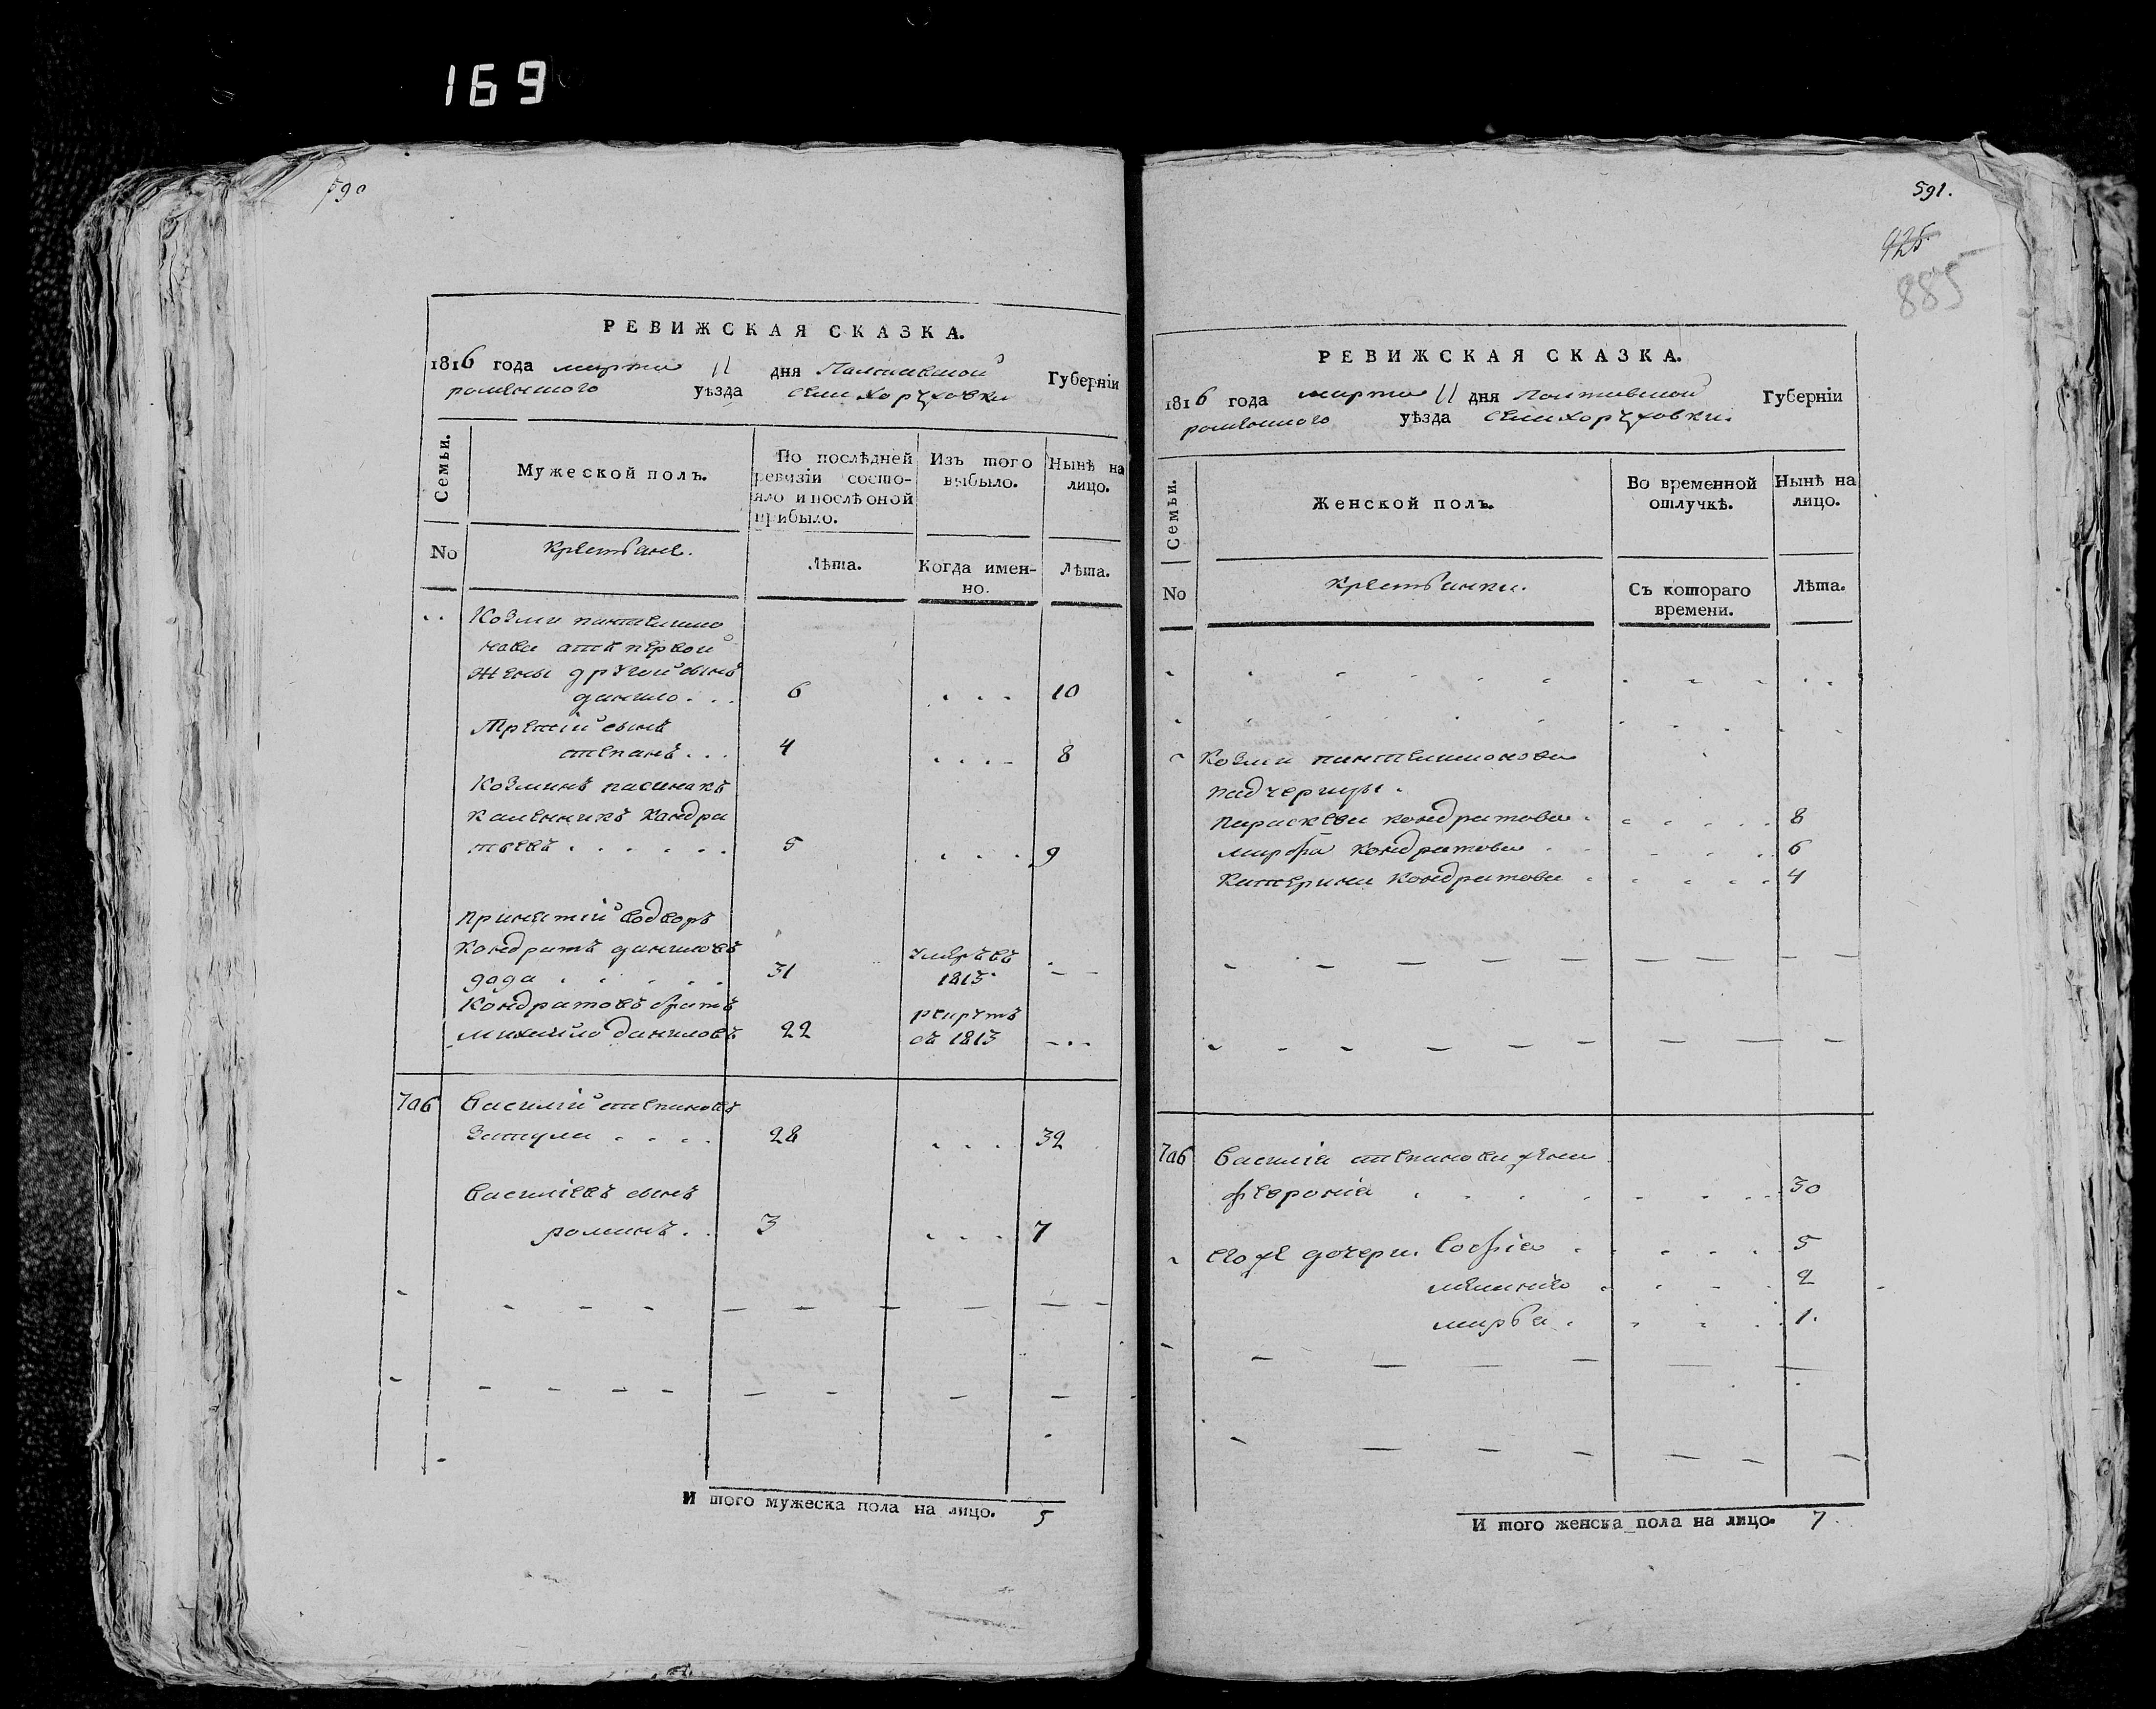 169
590
РЕВИЖСКАЯ СКАЗКА.
1816 года марта 11 дня Полтавской Губерніи
роменского уѣзда села Хоружовки
Семьи.
Мужеской полъ.
По послѣдней ревизіи состояло и послѣ оной прибыло.
Изъ того выбыло.
Нынѣ на лицо.
No
крестьане.
Лѣта.
Когда именно.
Лѣта.
Козми пантелимо
нова отъ первой
жены другой сынъ
данило . . . 6 . . . 10
Третій сынъ
степанъ . . . 4 . . . . 8
Козминъ пасинакъ
каленникъ Кондра
тьевъ . . . . . . 5 . . . . 9
Принятій водворъ
Кондратъ даниловъ
дода . . . . . 31 умеръ въ 1813
Кондратовъ братъ
михайло даниловъ 22 рекрутъ съ 1813
706 Василий степановъ
Затула . . . . 28 . . . 32
Василіевъ сынъ
романъ . . 3 . . . . 7
И того мужеска пола на лицо. 5
591.
425
885
РЕВИЖСКАЯ СКАЗКА.
1816 года марта 11 дня Полтавской Губерніи
роменского уѣзда села Хоружовки.
Семьи.
Женской полъ.
Во временной отлучкѣ.
Нынѣ на лицо.
No
Крестьанки.
Съ котораго времени.
Лѣта.
Козми пантелимонова
падчерицы .
Параскева кондратова . . . . . . 8
марфа Кондратова . . . . . 6
Катерина Кондратова . . . . . . 4
706 Василіа степанова жена
феврониа . . . . . . . . 30
его же дочери. Софіа . . . . . . 5
меланиа . . . . . 2
марьа . . . . . 1.
И того женска пола на лицо. 7.